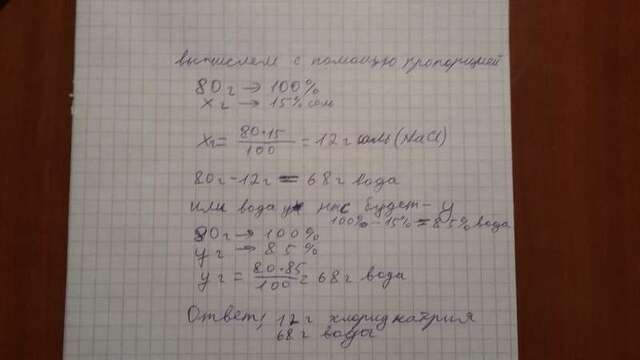 вычислем с помощью пропорцией
80г → 100%
xг → 15% соли
xг = 80•15 / 100 = 12г соль (NaCl)
80г - 12г = 68г вода
или вода у нас будет - y
100% - 15% = 85% вода
80г → 100%
yг → 85%
yг = 80•85 / 100 = 68г вода
Ответ: 12г хлорид натрия
68г воды